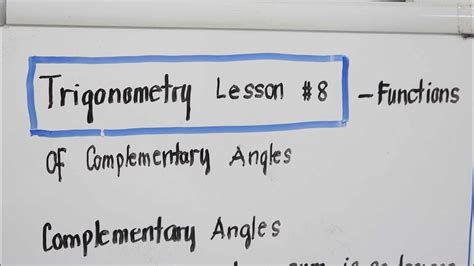 Trigonometry Lesson #8 - Functions
Of Complementary Angles
Complementary Angles